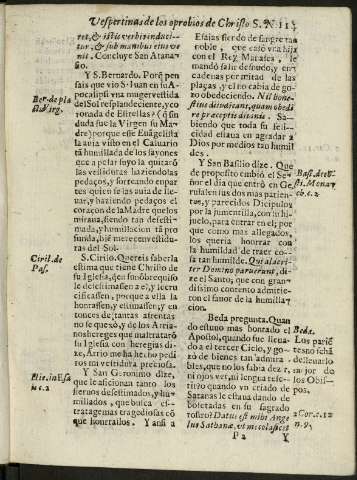 Vespertinas de los oprobios de Christo S. N. 115
ret, & istis verbis induci-
tur, & sub manibus eius ve
nit. Concluye San Atana-
sio.
Y S. Bernardo. Porq̃ pen
sais que viò S. Iuan en su A-
pocalipsi vna muger vestida
del Sol resplandeciente, y co
ronada de Estrellas? (q̃ sin
duda fue la Virgen su Ma
dre) porque este Euãgelista
la auia visto en el Caluari
tã humillada de los sayones
que a pelar suyo la quitarõ
las vestiduras haziendolas
pedaços, y sorteando enpar
tes quien se las auia de lle-
uar, y haziendo pedaços el
coraçon de la Madre que los
miraua, siendo tan desesti-
mada, y humillacion tã pro
funda, biẽ merece vestidu-
ras del Sol.
S. Cirilo. Quereis saber la
estima que tiene Christo de
su Iglesia, q̃ en su Obrequiso
le desestimassen a el, y le cru
cificassen, porque a ella la
honrassen, y estimassen, y en
tonces de tantas afrentas
no se quexò, y de los Arria-
nos hereges que maltratarõ
su Iglesia con heregias di-
ze, Arrio me ha hecho pedi-
ros mi vestidura preciosa.
Y San Geronimo dize,
que le aficionan tanto los
sieruos desestimados, y hu-
millados, que busca es-
tratagemas tragediosas cõ
que honrrallos. Y ansi a
Ber. de pla
st. Virg.
Ciril. de
Pas.
Hie. in Esa
ue. 2
Esaias sierdo de sangre tan
noble, que casò vna hija
con el Rey Manases, le
mandò salir desnudo, y en
cadenas por mitad de las
plaças, y el no cabia de go-
zo obedeciendo. Nil hone-
stius diiudicans, quam obedi
re præceptis diuinis. Sa-
biendo que toda su feli-
cidad estaua en agradar a
Dios por medios tan humil
des.
Y San Basilio dize. Que
de proposito embiò el Se-
ñor el dia que entrò en Ge
rusalen los dos mas parien-
tes, y parecidos Dicipulos
por la jumentilla, con su hi-
juelo, para entrar en el; por
que como mas allegados,
los queria honrrar con
la humildad de traer co-
sa tan humilde. Qui alacri-
ter Domino paruerunt, di-
ze el Santo; que con gran-
dissimo contento admitie-
ron el fauor de la humilla-
cion.
Beda pregunta. Quan
do estuuo mas honrrado el
Apostol, quando fue lleua-
do a el tercer Cielo, y go-
zò de bienes tan admira
bles, que no los sabe dezir,
ni ojos ver, ni lengua refe-
tir? o quando vn criado de
Satanas le estaua dando de
bofetadas en su sagrado
rostro? Datus est mihi Ange
lus Sathanæ, vt me colaficet
Basil. de cõ
sti. Monar
ch. c. 2
Beda.
Los parien
tesno hã de
llenarlo me
jor de los Obis-
pos.
2 Cor. c. 12
n. 9.
P 2 Y